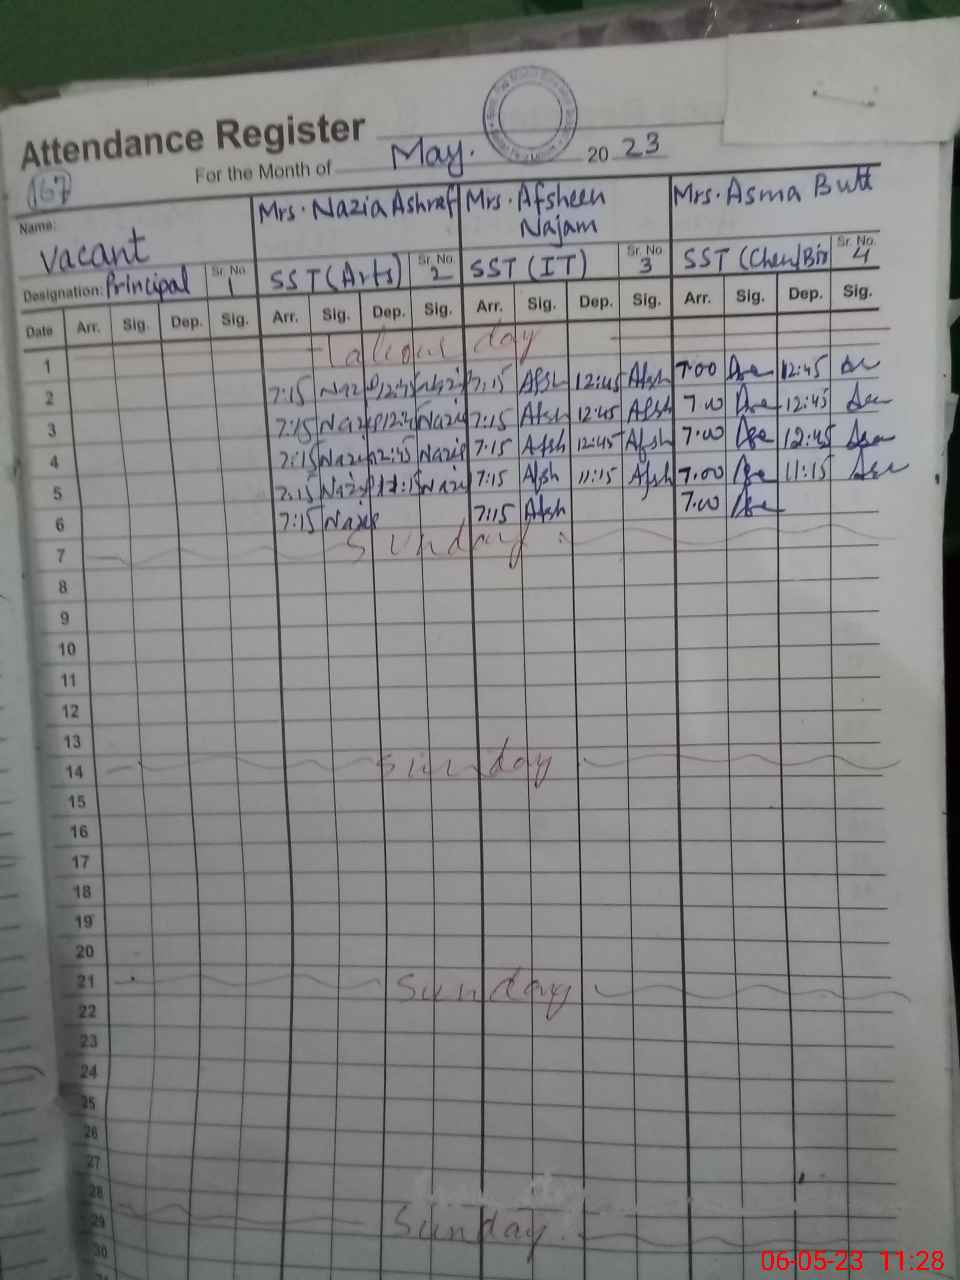 Attendance Register
For the Month of May. 2023
167
Name: Vacant Mrs. Nazia Ashraf Mrs. Afsheen Najam Mrs. Asma Butt
Designation: Principal Sr. No. 1 SST (Arts) Sr. No. 2 SST (IT) Sr. No. 3 SST (Chem/Bio Sr. No. 4
Date Arr. Sig. Dep. Sig. Arr. Sig. Dep. Sig. Arr. Sig. Dep. Sig. Arr. Sig. Dep. Sig.
1 Labour day
2 7:15 Nazi 12:45 Nazi 7:15 Afsh 12:45 Afsh 7:00 12:45
3 7:15 Nazi 12:45 Nazi 7:15 Afsh 12:45 Afsh 7:00 12:45
4 7:15 Nazi 12:45 Nazi 7:15 Afsh 12:45 Afsh 7:00 12:45
5 7:15 Nazi 11:15 Nazi 7:15 Afsh 11:15 Afsh 7:00 11:15
6 7:15 Nazi 7:15 Afsh 7:00
7 Sunday
8
9
10
11
12
13
14 Sunday
15
16
17
18
19
20
21 Sunday
22
23
24
25
26
27
28
29 Sunday
30
06-05-23 11:28